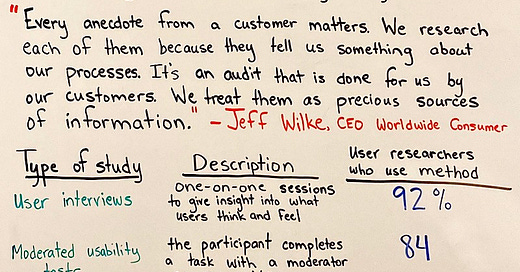 "Every anecdote from a customer matters. We research
each of them because they tell us something about
our processes. It's an audit that is done for us by
our customers. We treat them as precious sources
of information." - Jeff Wilke, CEO Worldwide Consumer
Type of study
Description
User researchers
who use method
User interviews
one-on-one sessions
to give insight into what
users think and feel
92%
Moderated usability
the participant completes
a task with a moderator
84